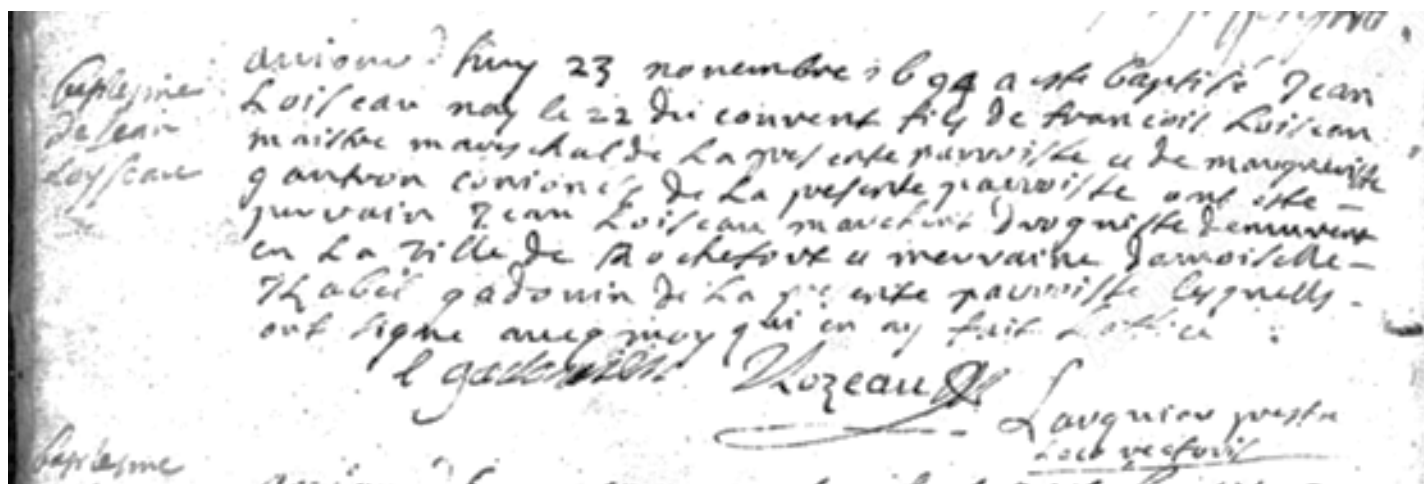 baptesme
de Jean
Loyseau
auiourd huy 23 nouembre 1694 a este baptisé Jean
Loiseau nay le 22 du courent fils de francois Loiseau
maistre mareschal de La presente parroisse et de margueritte
gautron conionts de La presente parroisse ont este
parrain Jean Loiseau marchent droguiste demeurent
en La Ville de Rochefort et merraine damoiselle
Izabel gadouin de La presente parroisse lesquells
ont signe avecq moy qui en ay fait Loffice
e gadouin JLozeau
Lauguier prestre
Loco rectoris
baptesme